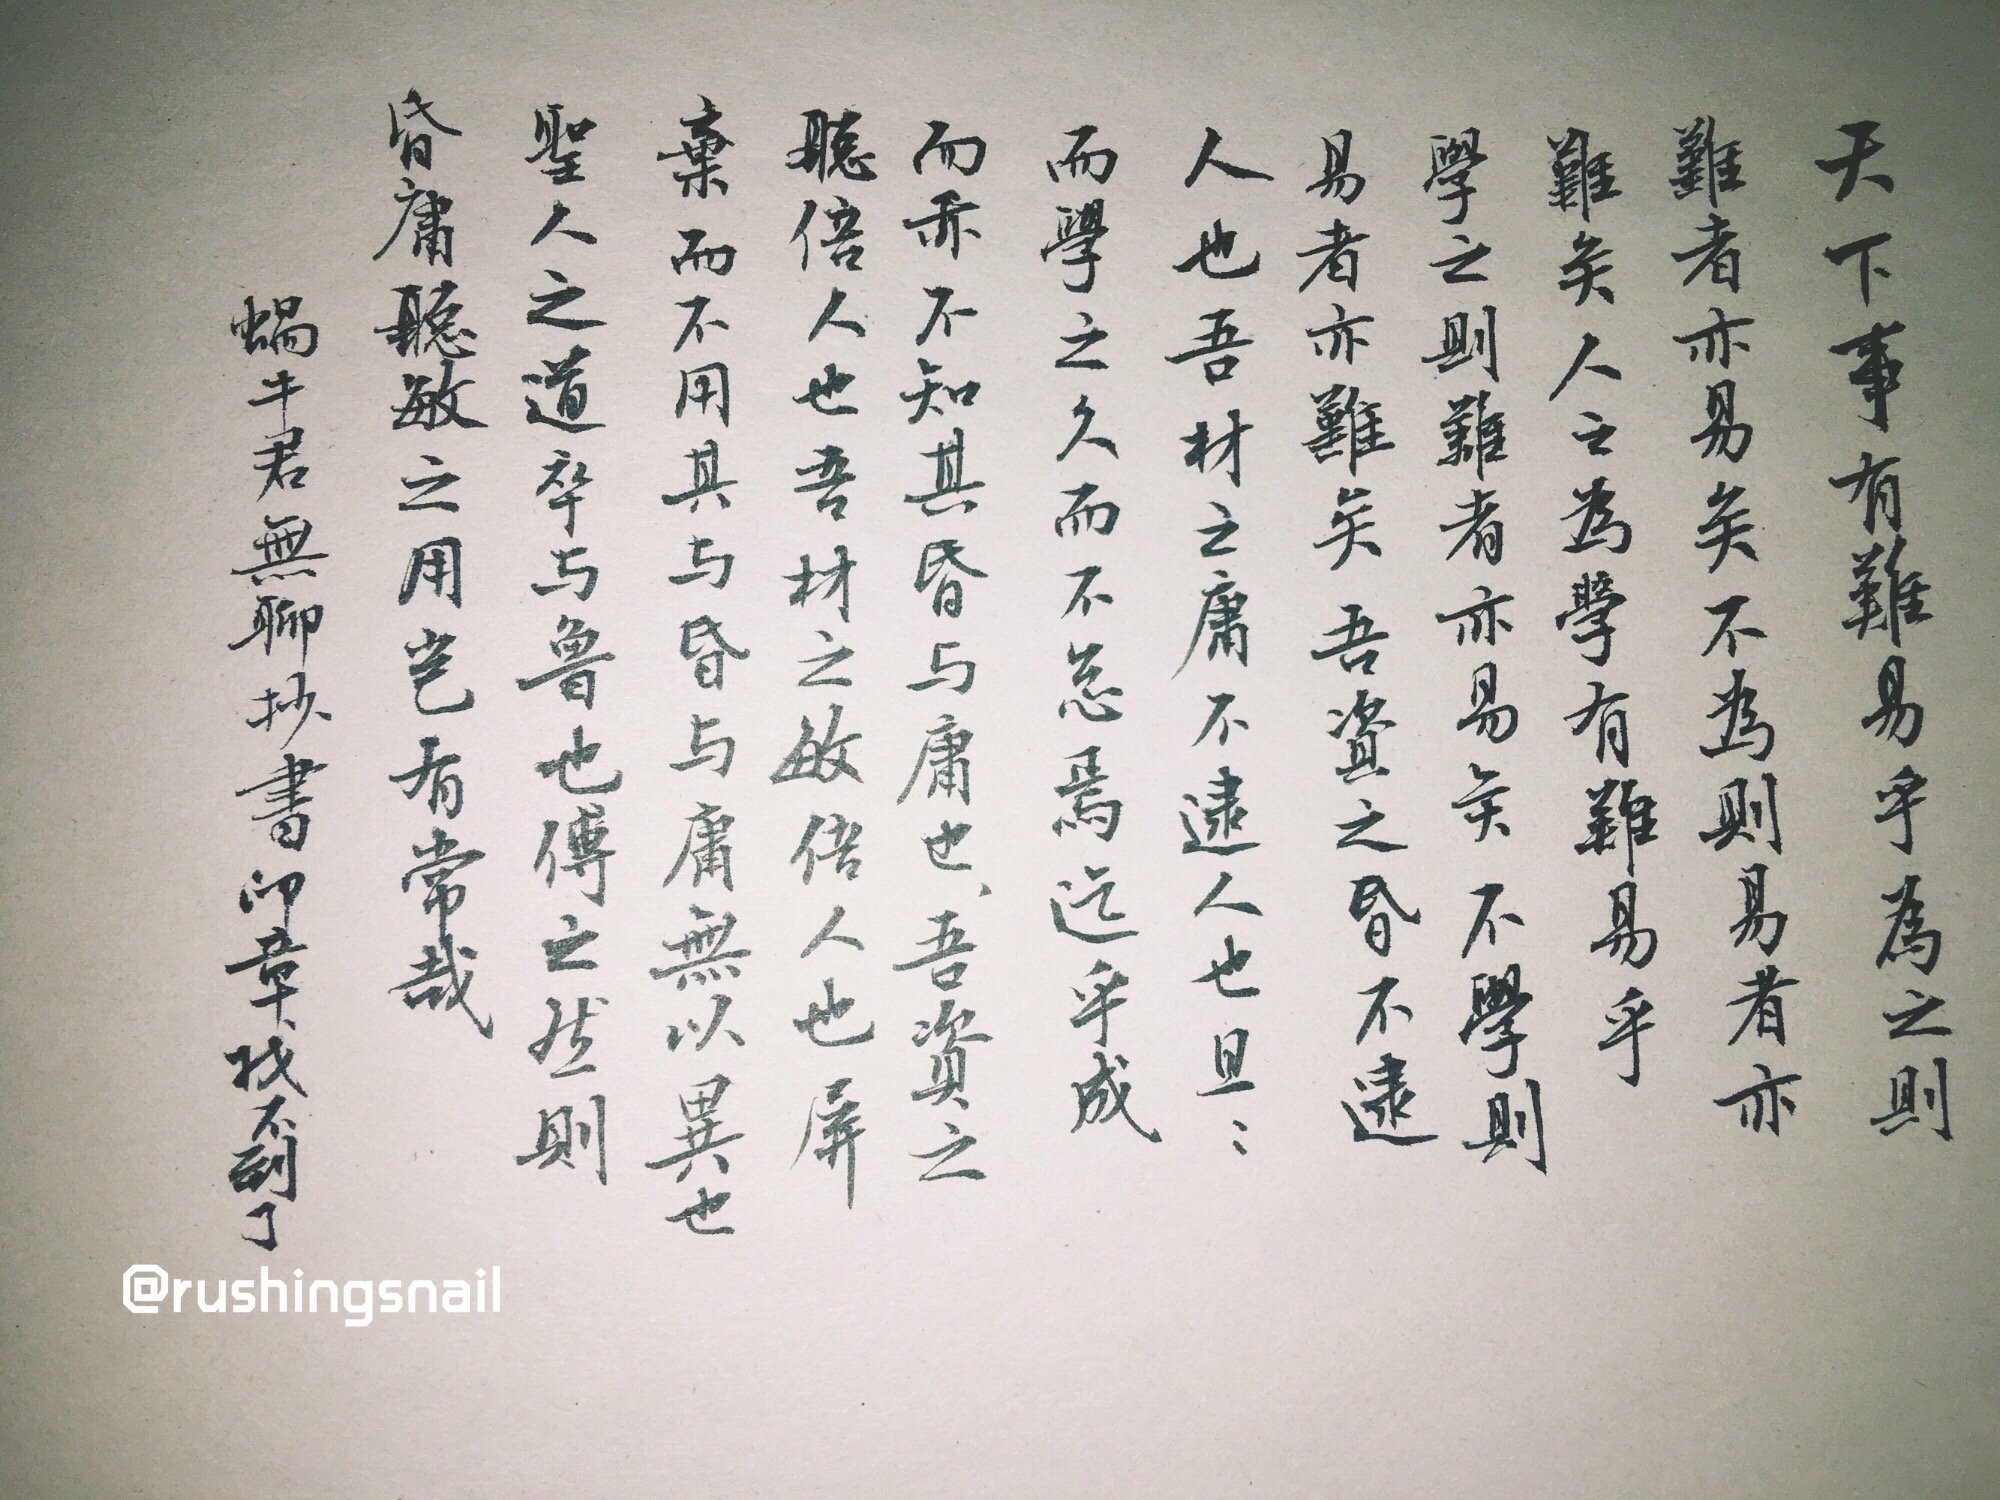 天下事有難易乎為之則
難者亦易矣不為則易者亦
難矣人之為學有難易乎
學之則難者亦易矣不學則
易者亦難矣吾資之昏不逮
人也吾材之庸不逮人也旦〻
而學之久而不怠焉迄乎成
而亦不知其昏与庸也、吾資之
聰倍人也吾材之敏倍人也屏
棄而不用其与昏与庸無以異也
聖人之道卒与魯也傅之然則
昏庸聰敏之用豈有常哉
蝸牛君無聊抄書印章找不到了
@rushingsnail